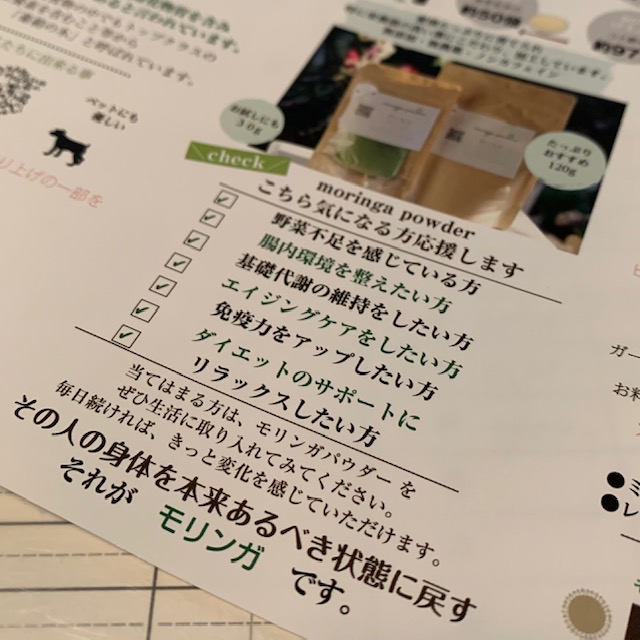 約50倍
約97
です。
と言われています。
トップクラスの
と呼ばれています。
ノンカフェイン
ペットにも
優しい
り上げの一部を
お試しにも
30g
たっぷり
おすすめ
120g
check
moringa powder
こちら気になる方応援します
野菜不足を感じている方
腸内環境を整えたい方
基礎代謝の維持をしたい方
エイジングケアをしたい方
免疫力をアップしたい方
ダイエットのサポートに
リラックスしたい方
当てはまる方は、モリンガパウダー を
ぜひ生活に取り入れてみてください。
毎日続ければ、きっと変化を感じていただけます。
その人の身体を本来あるべき状態に戻す
それが モリンガ です。
ガー
お料